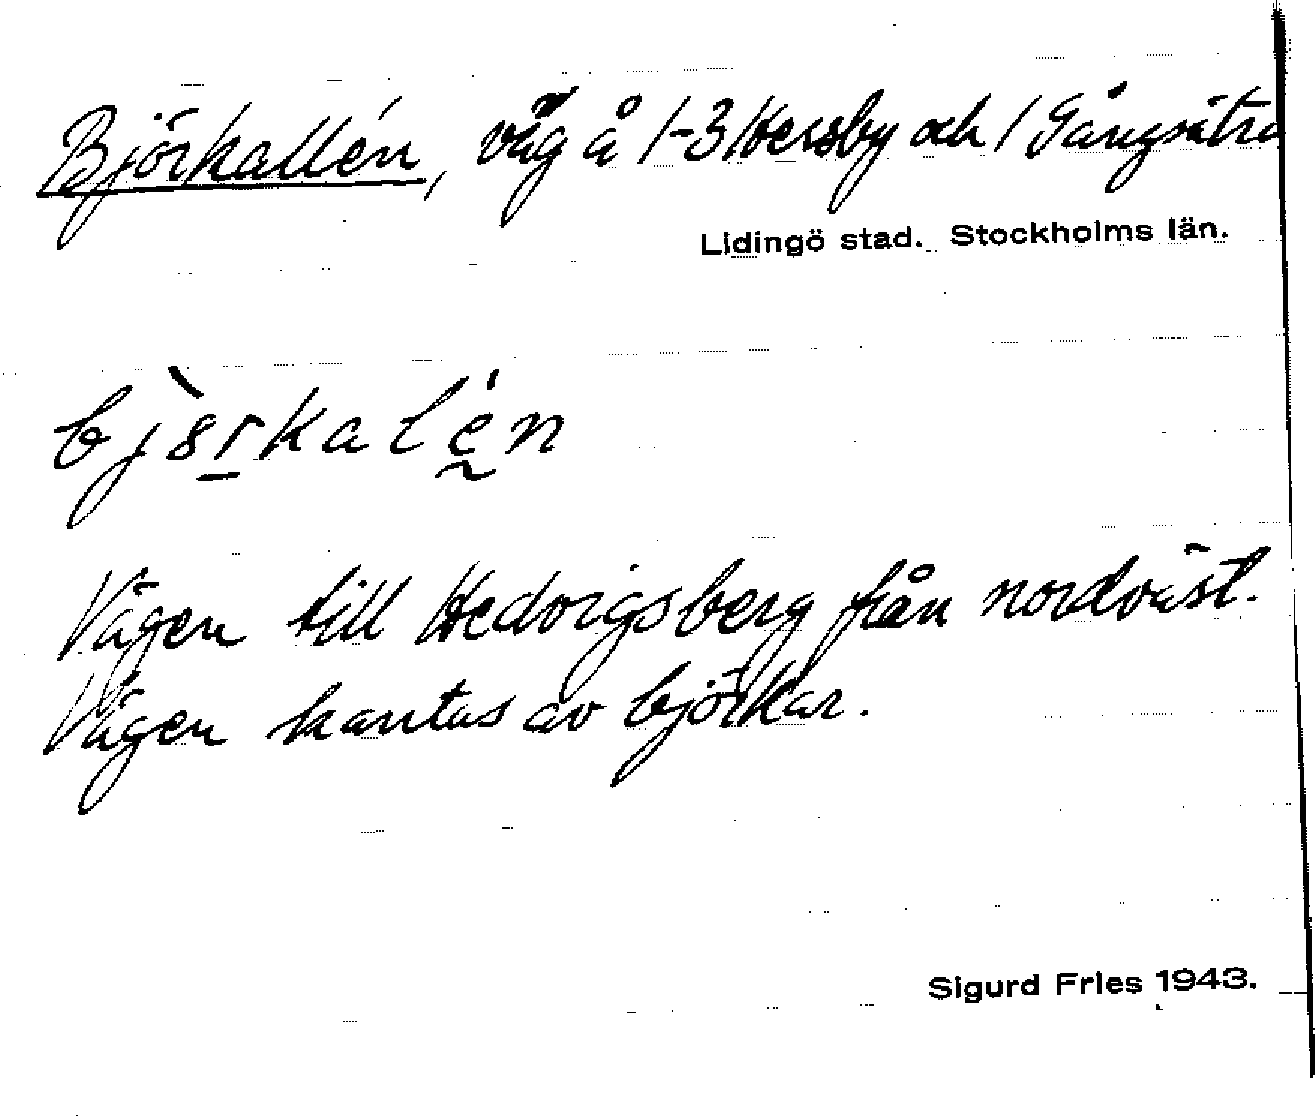 Björkallén, väg å 1-3 Hersby och 1 Gångsätra
Lidingö stad. Stockholms län.
Vägen till Hedvigsberg från nordväst.
Vägen kantas av björkar.
Sigurd Fries 1943.